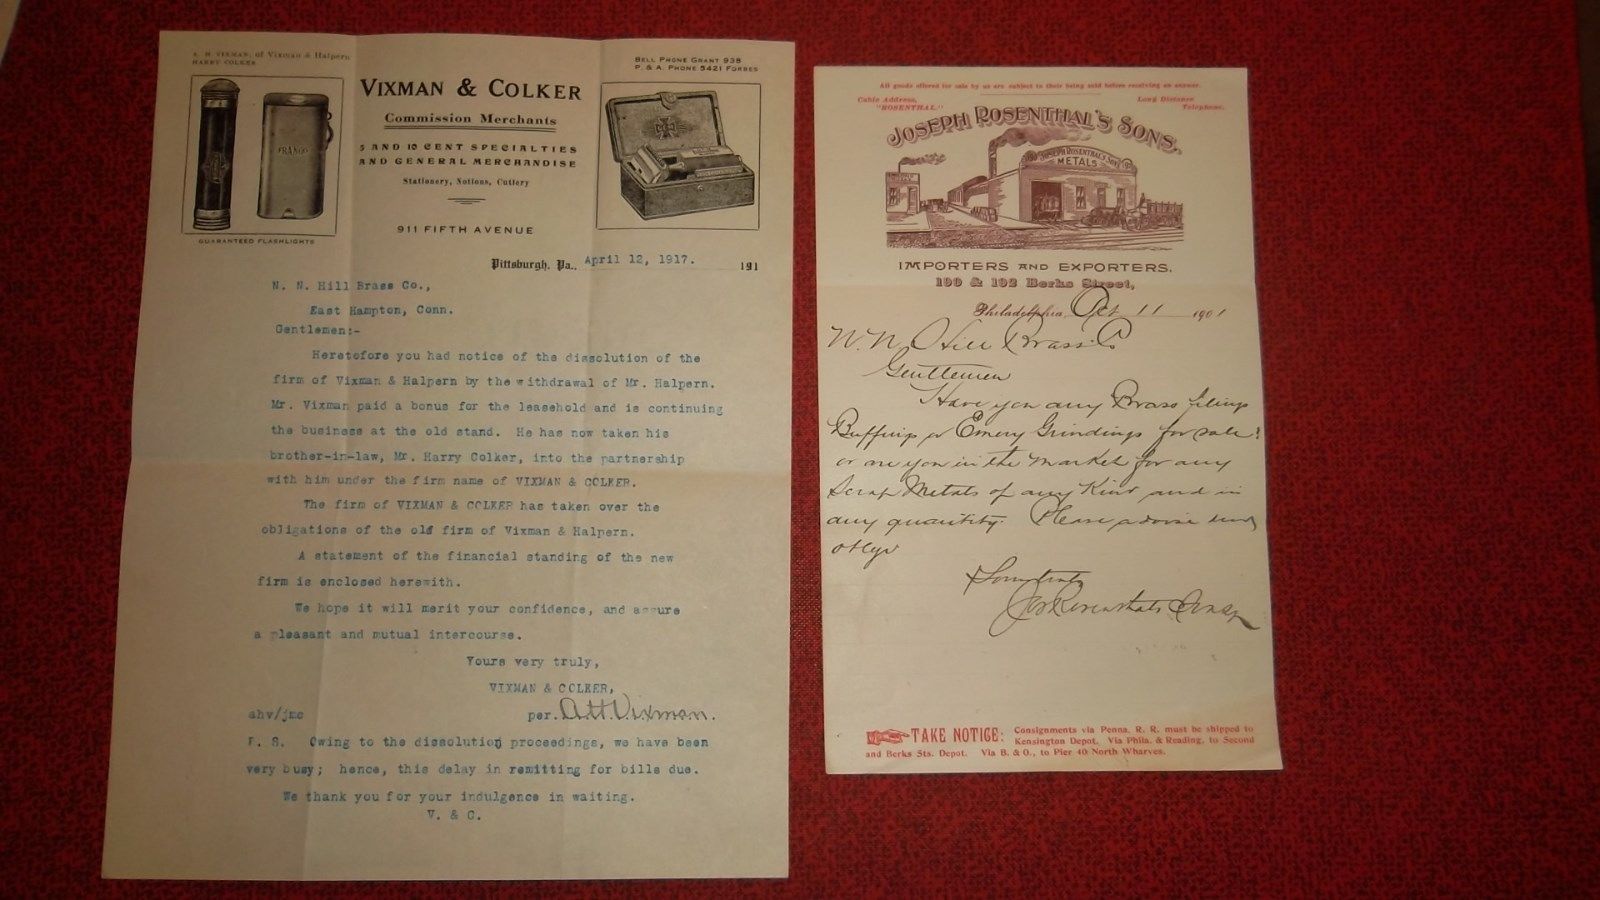 A. H. VIXMAN, of Vixman & Halpern
HARRY COLKER
BELL PHONE GRANT 938
P. & A. PHONE 5421 FORBES
VIXMAN & COLKER
Commission Merchants
5 AND 10 CENT SPECIALTIES
AND GENERAL MERCHANDISE
Stationery, Notions, Cutlery
911 FIFTH AVENUE
FRANCO
GUARANTEED FLASHLIGHTS
Pittsburgh, Pa., April 12, 1917. 191
N. N. Hill Brass Co.,
East Hampton, Conn.
Gentlemen:-
Heretofore you had notice of the dissolution of the
firm of Vixman & Halpern by the withdrawal of Mr. Halpern.
Mr. Vixman paid a bonus for the leasehold and is continuing
the business at the old stand. He has now taken his
brother-in-law, Mr. Harry Colker, into the partnership
with him under the firm name of VIXMAN & COLKER.
The firm of VIXMAN & COLKER has taken over the
obligations of the old firm of Vixman & Halpern.
A statement of the financial standing of the new
firm is enclosed herewith.
We hope it will merit your confidence, and assure
a pleasant and mutual intercourse.
Yours very truly,
VIXMAN & COLKER,
ahv/jmc per. A.H.Vixman.
P. S. Owing to the dissolution proceedings, we have been
very busy; hence, this delay in remitting for bills due.
We thank you for your indulgence in waiting.
V. & C.
All goods offered for sale by us are subject to their being sold before receiving an answer.
Cable Address, "ROSENTHAL."
Long Distance Telephone.
JOSEPH ROSENTHAL'S SONS,
JOSEPH ROSENTHAL'S SONS
METALS
IMPORTERS AND EXPORTERS,
190 & 192 Berks Street,
Philadelphia, Oct 11 1901
N. N. Hill Brass Co
Gentlemen
Have you any Brass filings
Buffings or Emery Grindings for sale?
or are you in the market for any
Scrap Metals of any Kind and in
any quantity. Please advise
Yours truly
Jos Rosenthals Sons
TAKE NOTICE: Consignments via Penna. R. R. must be shipped to
Kensington Depot. Via Phila. & Reading, to Second
and Berks Sts. Depot. Via B. & O., to Pier 40 North Wharves.